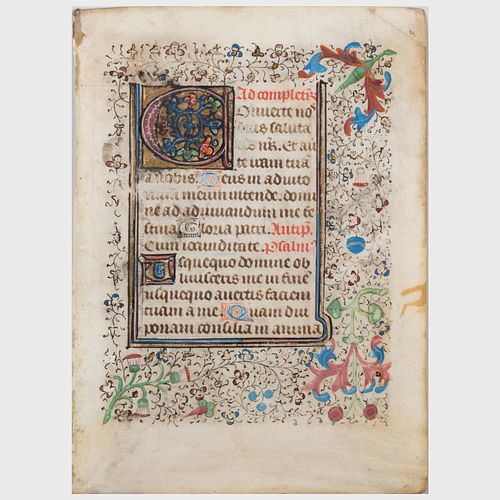 Ad completor̄
Conuerte nos
deus saluta
ris nr̄. Et auer
te iram tuā
a nobis. Deus in adiuto
rium meum intende. domi
ne ad adiuuandum me fe
stina Gloria patri. Antip̄.
Cum iocunditate. Psalm⁹
Usquequo domine ob
liuisceris me in finē
usquequo auertis faciem
tuam a me Quam diu
ponam consilia in anima